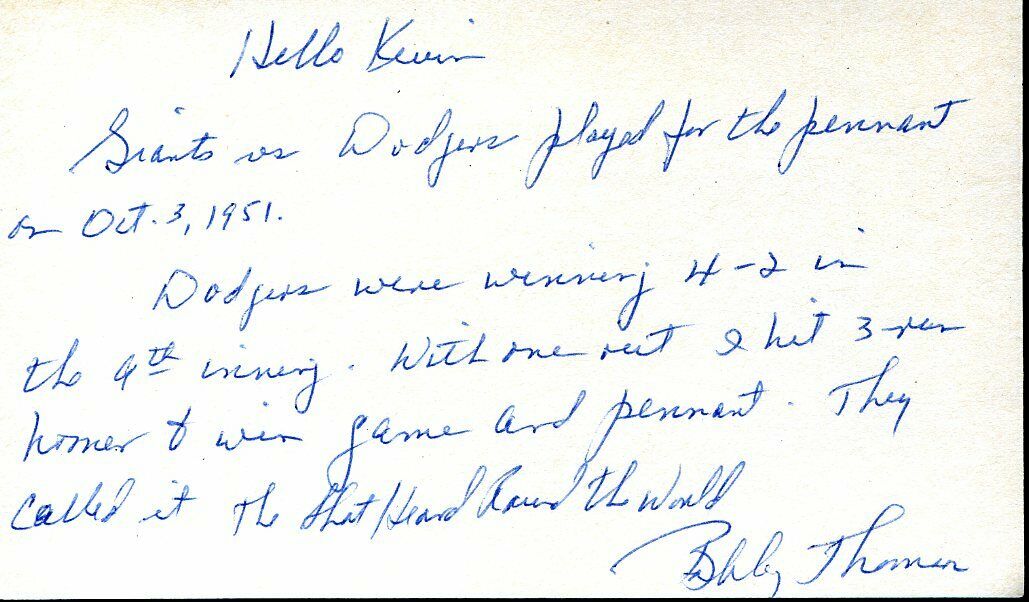 Hello Kevin
Giants vs Dodgers played for the pennant
on Oct. 3, 1951.
Dodgers were winning 4-2 in
the 9th inning. With one out I hit 3-run
homer to win game and pennant. They
called it The Shot Heard Round The World
Bobby Thomson